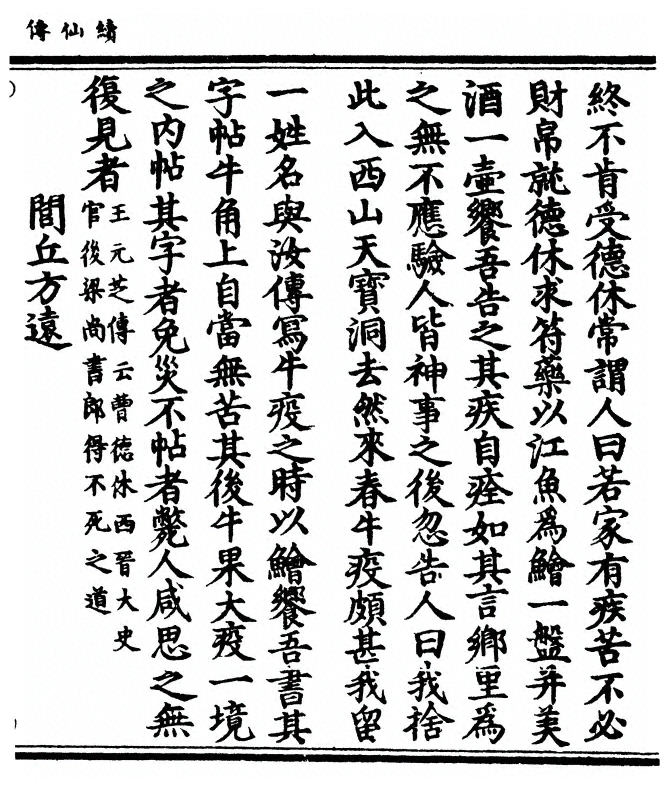 續仙傳
終不肯受德休常謂人曰若家有疾苦不必
財帛就德休求符藥以江魚爲鱠一盤并美
酒一壷饗吾告之其疾自痊如其言鄉里爲
之無不應驗人皆神事之後忽告人曰我捨
此入西山天寶洞去然來春牛疫頗甚我留
一姓名與汝傳寫牛疫之時以鱠饗吾書其
字帖牛角上自當無苦其後牛果大疫一境
之內帖其字者免災不帖者斃人咸思之無
復見者
王元芝傳云曹德休西晉大史
官後梁尚書郎得不死之道
閭丘方遠